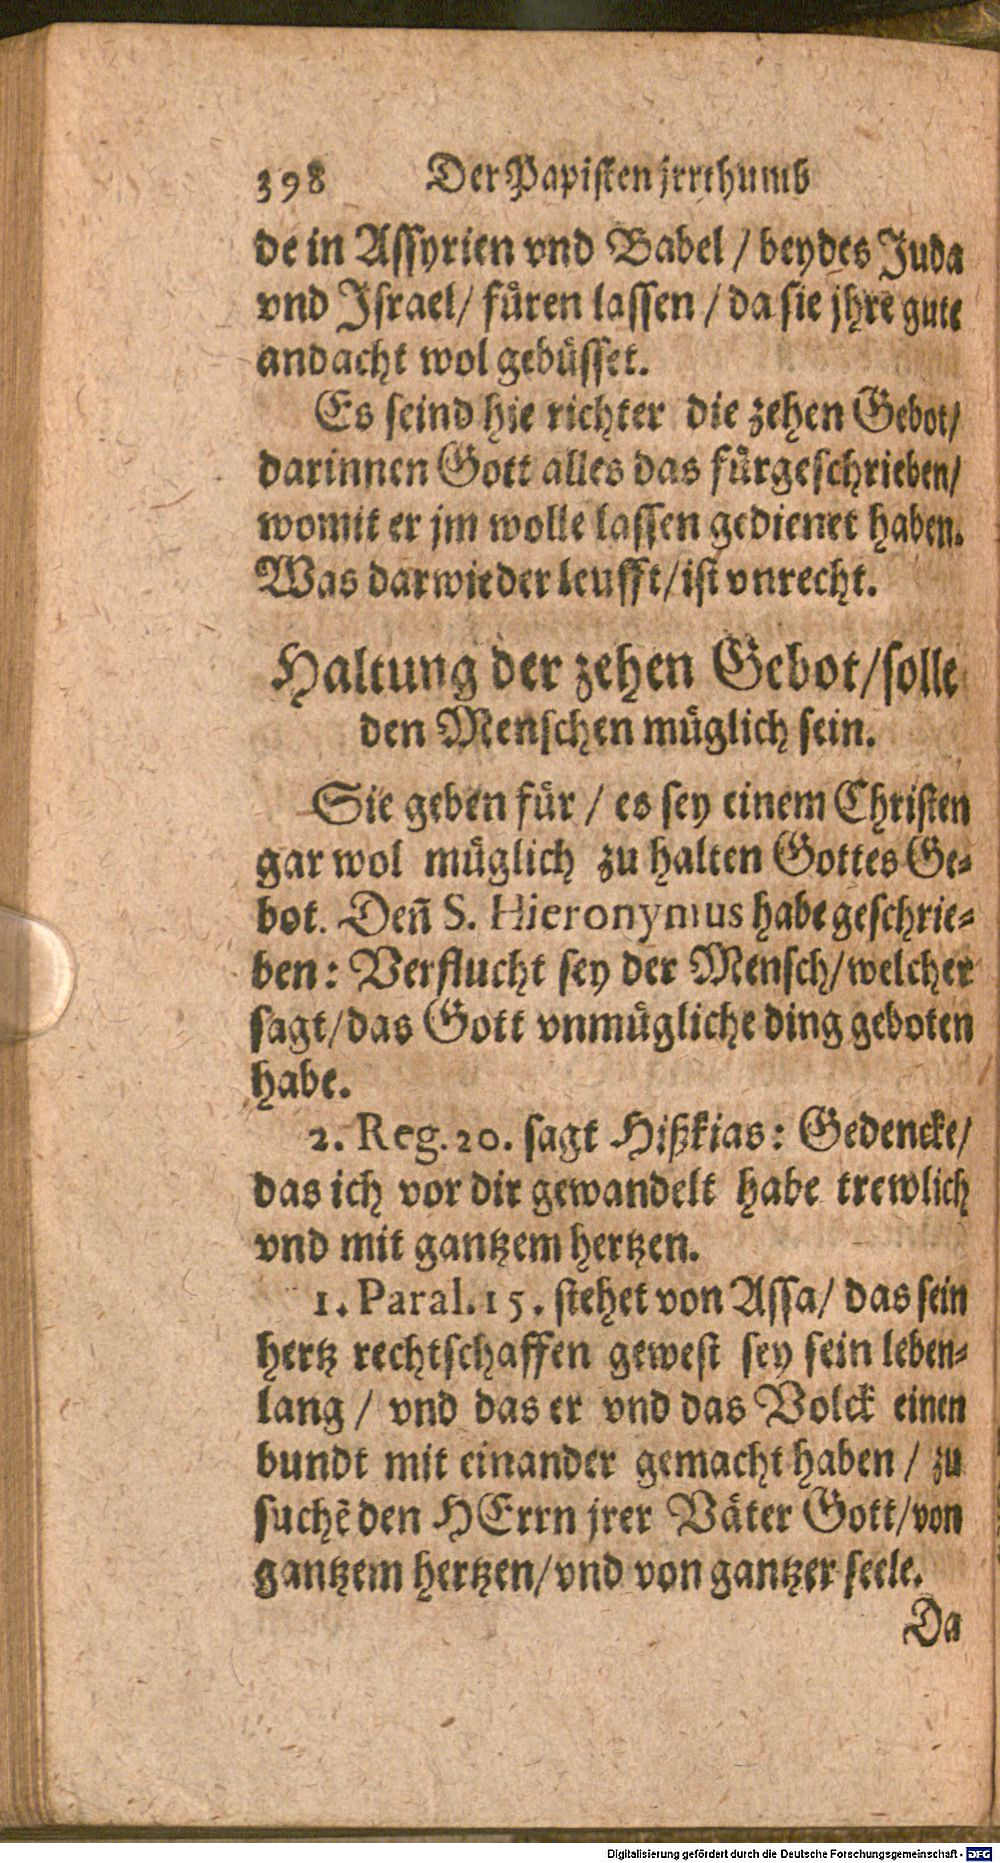 398 Der Papisten jrrthumb
de in Assyrien vnd Babel / beydes Juda
vnd Israel/ fůren lassen / da sie jhre gute
andacht wol gebůsset.
Es seind hie richter die zehen Gebot/
darinnen Gott alles das fůrgeschrieben/
womit er jm wolle lassen gedienet haben.
Was darwieder leufft/ist vnrecht.
Haltung der zehen Gebot/solle
den Menschen můglich sein.
Sie geben fůr / es sey einem Christen
gar wol můglich zu halten Gottes Ge-
bot. Den̄ S. Hieronymus habe geschrie-
ben: Verflucht sey der Mensch/welcher
sagt/das Gott vnmůgliche ding geboten
habe.
2. Reg. 20. sagt Hißkias: Gedencke/
das ich vor dir gewandelt habe trewlich
vnd mit gantzem hertzen.
1. Paral. 15. stehet von Assa/ das sein
hertz rechtschaffen gewest sey sein leben-
lang / vnd das er vnd das Volck einen
bundt mit einander gemacht haben / zu
suchē den HErrn jrer Våter Gott/von
gantzem hertzen/vnd von gantzer seele.
Da
Digitalisierung gefördert durch die Deutsche Forschungsgemeinschaft - DFG